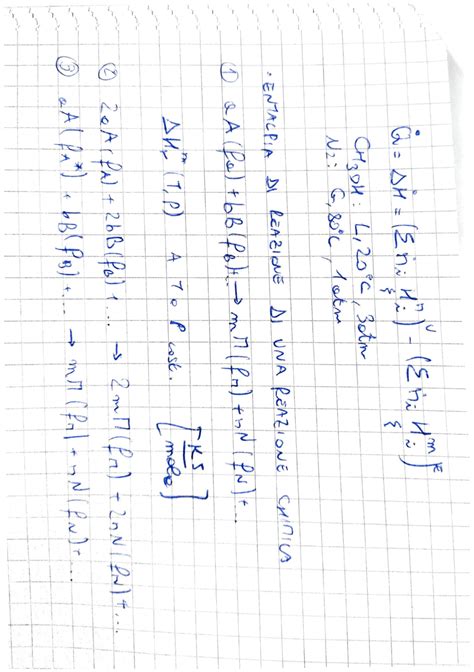 Q̇ = ΔḢ = (Σ ṅᵢ Hᵢᵐ)ᵁ - (Σ ṅᵢ Hᵢᵐ)ᴱ
CH3OH: L, 20°C, 3atm
N2: G, 80°C, 1atm
· ENTALPIA DI REAZIONE DI UNA REAZIONE CHIMICA
① aA(fA) + bB(fB)+... → mM(fM) + nN(fN) + ...
ΔHrᵐ (T,P) A T o P cost. [KJ/mole]
② 2aA(fA) + 2bB(fB) + ... → 2mM(fM) + 2nN(fN) + ...
③ aA(fA*) + bB(fB) + ... → mM(fM) + nN(fN) + ...